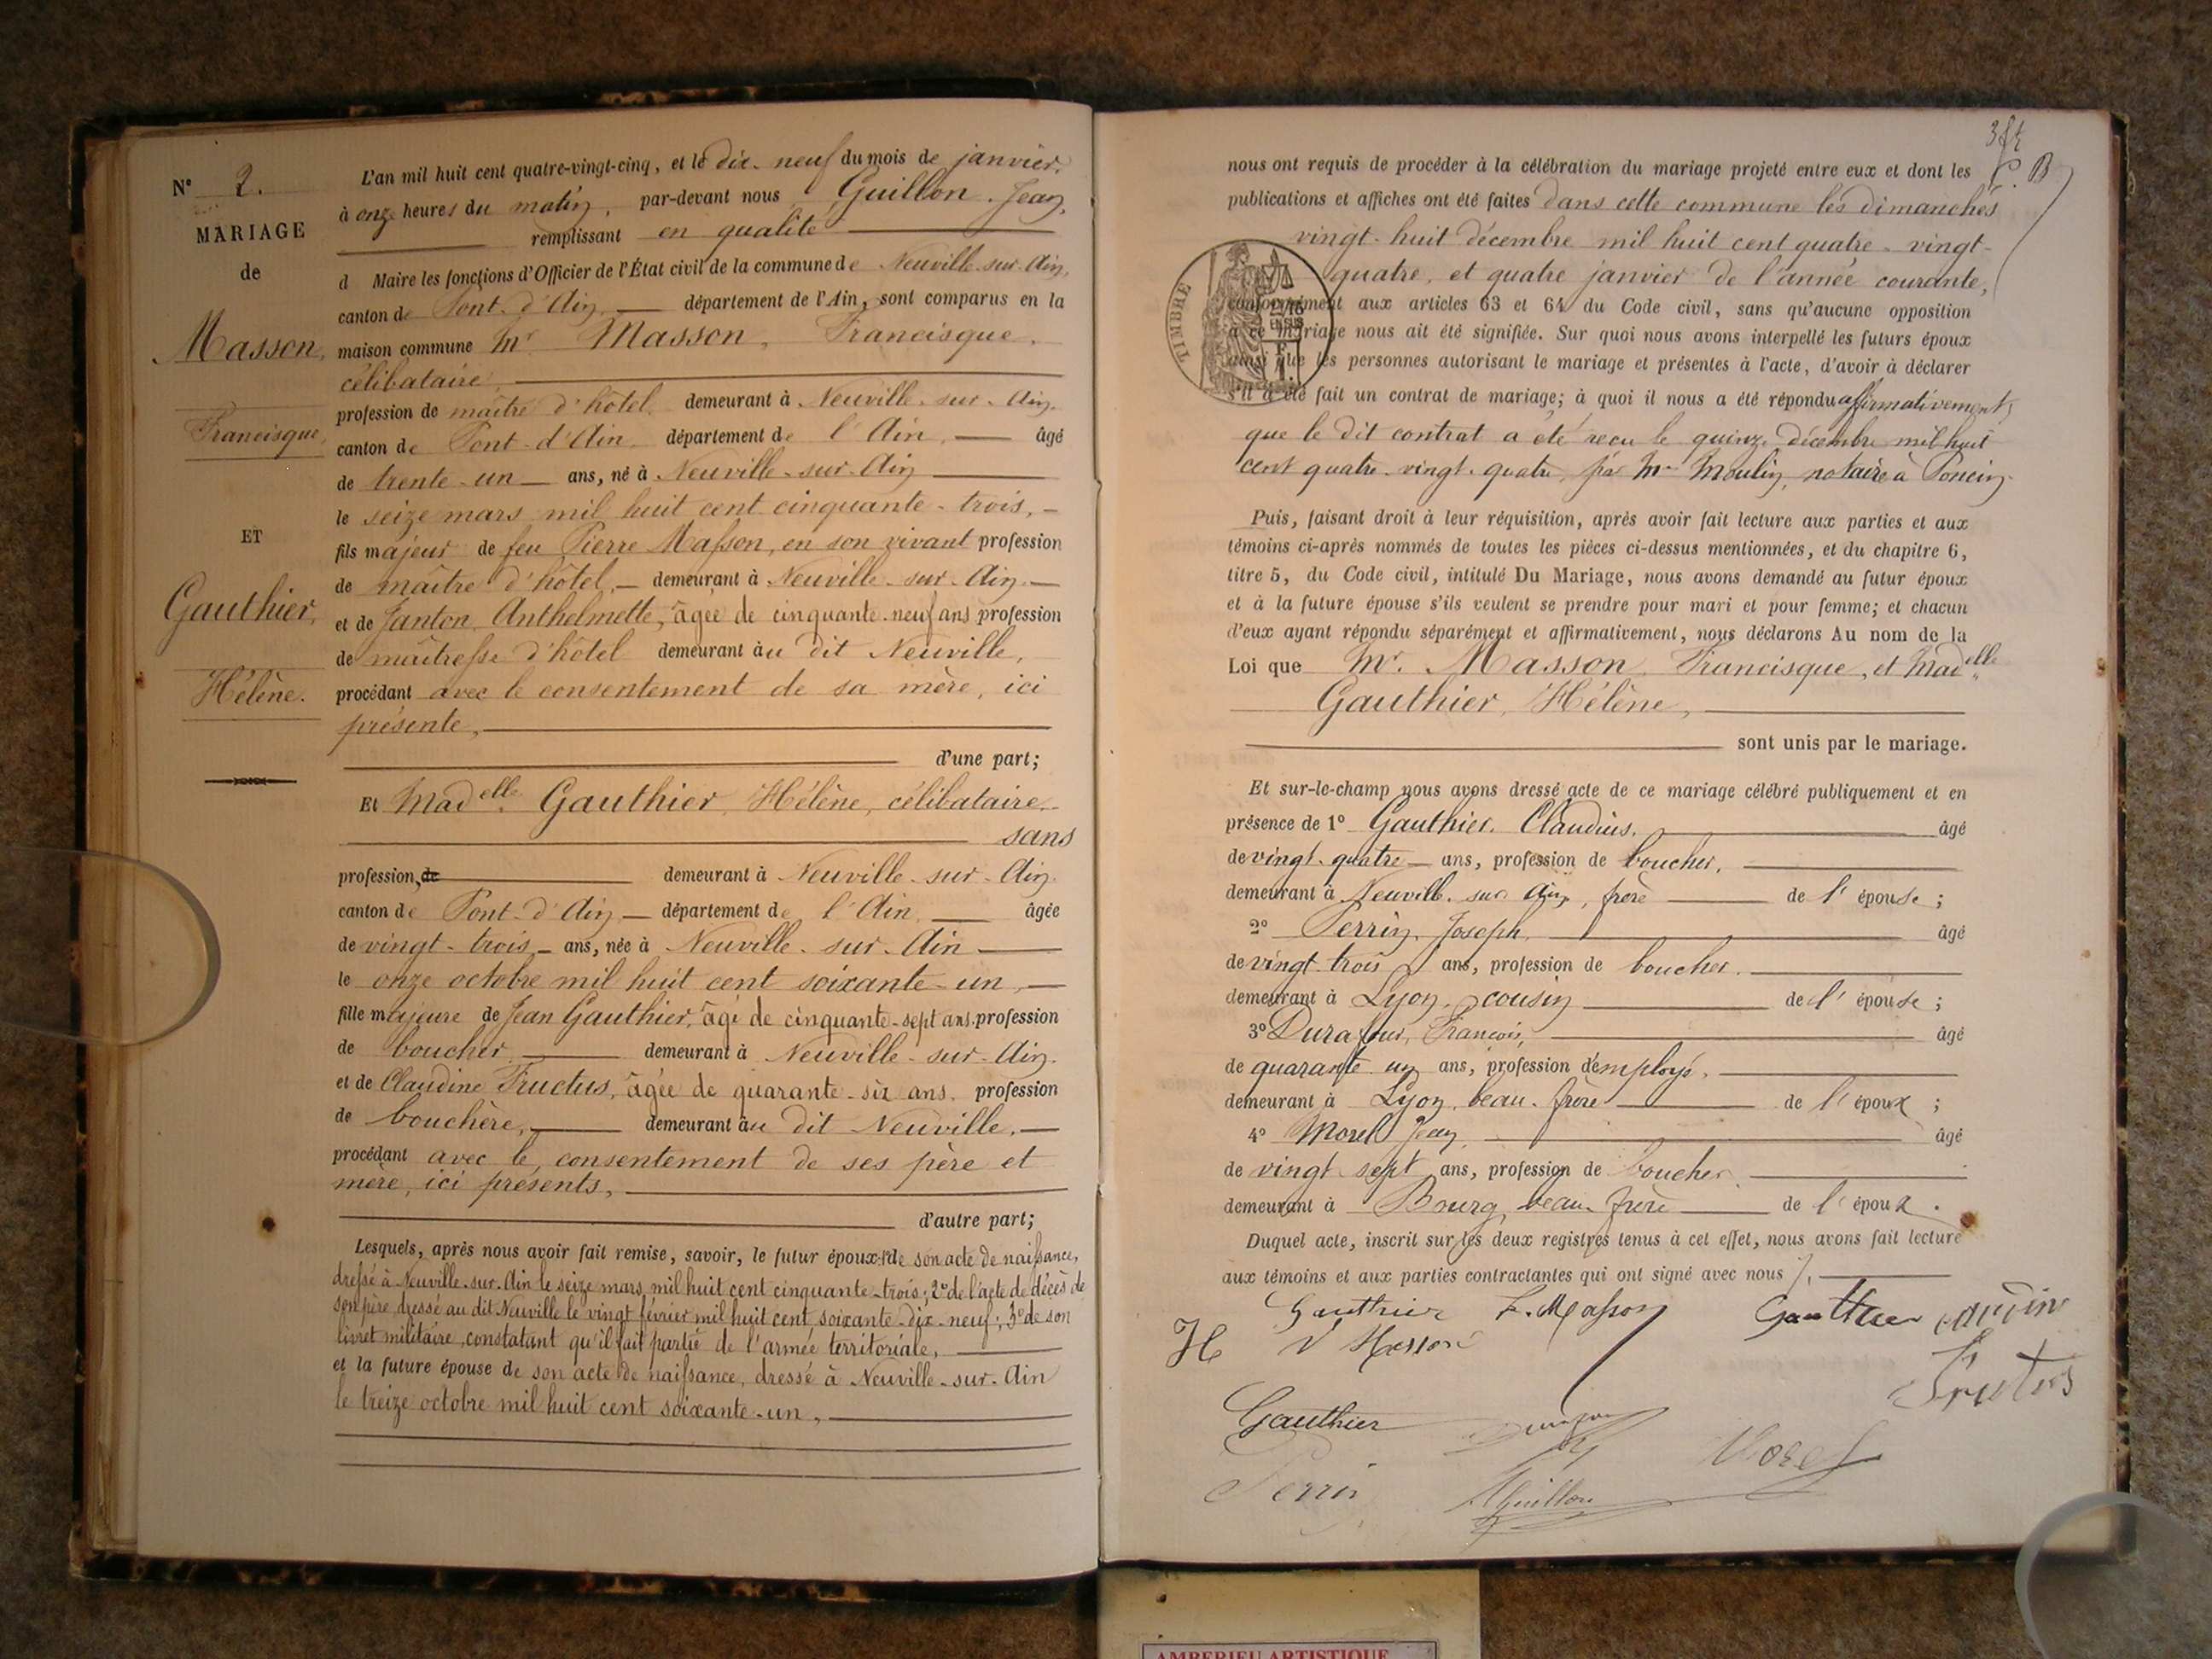 N° 2.
MARIAGE
de
Masson,
Francisque,
ET
Gauthier,
Hélène.
L'an mil huit cent quatre-vingt-cinq, et le dix-neuf du mois de janvier,
à onze heures du matin, par-devant nous Guillon Jean,
remplissant en qualité
d Maire les fonctions d'Officier de l'État civil de la commune de Neuville-sur-Ain,
canton de Pont-d'Ain, département de l'Ain, sont comparus en la
maison commune Mr Masson, Francisque,
célibataire,
profession de maître d'hôtel demeurant à Neuville-sur-Ain,
canton de Pont-d'Ain, département de l'Ain, âgé
de trente-un ans, né à Neuville-sur-Ain
le seize mars mil huit cent cinquante-trois,
fils majeur de feu Pierre Masson, en son vivant profession
de maître d'hôtel, demeurant à Neuville-sur-Ain
et de Janton, Anthelmette, âgée de cinquante-neuf ans profession
de maîtresse d'hôtel demeurant au dit Neuville,
procédant avec le consentement de sa mère, ici
présente,
d'une part;
Et Madelle Gauthier, Hélène, célibataire
sans
profession, de demeurant à Neuville-sur-Ain
canton de Pont-d'Ain département de l'Ain, âgée
de vingt-trois ans, née à Neuville-sur-Ain
le onze octobre mil huit cent soixante-un,
fille majeure de Jean Gauthier, âgé de cinquante-sept ans, profession
de boucher demeurant à Neuville-sur-Ain
et de Claudine Fructus, âgée de quarante-six ans, profession
de bouchère, demeurant au dit Neuville,
procédant avec le consentement de ses père et
mère, ici présents,
d'autre part;
Lesquels, après nous avoir fait remise, savoir, le futur époux: 1° de son acte de naissance,
dressé à Neuville-sur-Ain le seize mars mil huit cent cinquante-trois; 2° de l'acte de décès de
son père, dressé au dit Neuville le vingt février mil huit cent soixante-dix-neuf; 3° de son
livret militaire, constatant qu'il fait partie de l'armée territoriale,
et la future épouse de son acte de naissance, dressé à Neuville-sur-Ain
le treize octobre mil huit cent soixante-un,
B
nous ont requis de procéder à la célébration du mariage projeté entre eux et dont les
publications et affiches ont été faites dans cette commune les dimanches
vingt-huit décembre mil huit cent quatre-vingt-
quatre, et quatre janvier de l'année courante,
TIMBRE
conformément aux articles 63 et 64 du Code civil, sans qu'aucune opposition
à ce mariage nous ait été signifiée. Sur quoi nous avons interpellé les futurs époux
ainsi que les personnes autorisant le mariage et présentes à l'acte, d'avoir à déclarer
s'il a été fait un contrat de mariage; à quoi il nous a été répondu affirmativement,
que le dit contrat a été reçu le quinze décembre mil huit
cent quatre-vingt-quatre, par Mr Moulin, notaire à Poncin
Puis, faisant droit à leur réquisition, après avoir fait lecture aux parties et aux
témoins ci-après nommés de toutes les pièces ci-dessus mentionnées, et du chapitre 6,
titre 5, du Code civil, intitulé Du Mariage, nous avons demandé au futur époux
et à la future épouse s'ils veulent se prendre pour mari et pour femme; et chacun
d'eux ayant répondu séparément et affirmativement, nous déclarons Au nom de la
Loi que Mr. Masson Francisque, et Madelle
Gauthier, Hélène,
sont unis par le mariage.
Et sur-le-champ nous avons dressé acte de ce mariage célébré publiquement et en
présence de 1° Gauthier, Claudius, âgé
de vingt-quatre ans, profession de boucher,
demeurant à Neuville-sur-Ain, frère de l'épouse;
2° Perrin, Joseph, âgé
de vingt-trois ans, profession de boucher.
demeurant à Lyon, cousin de l'épouse;
3° Durafour, François, âgé
de quarante-un ans, profession d'employé,
demeurant à Lyon, beau-frère de l'époux;
4° Morel Jean, âgé
de vingt-sept ans, profession de boucher
demeurant à Bourg, beau-frère de l'époux.
Duquel acte, inscrit sur les deux registres tenus à cet effet, nous avons fait lecture
aux témoins et aux parties contractantes qui ont signé avec nous
Gauthier F. Masson Gauthier
H V Masson
Fructus
Gauthier
Perrin Guillon Morel
AMBERIEU ARTISTIQUE